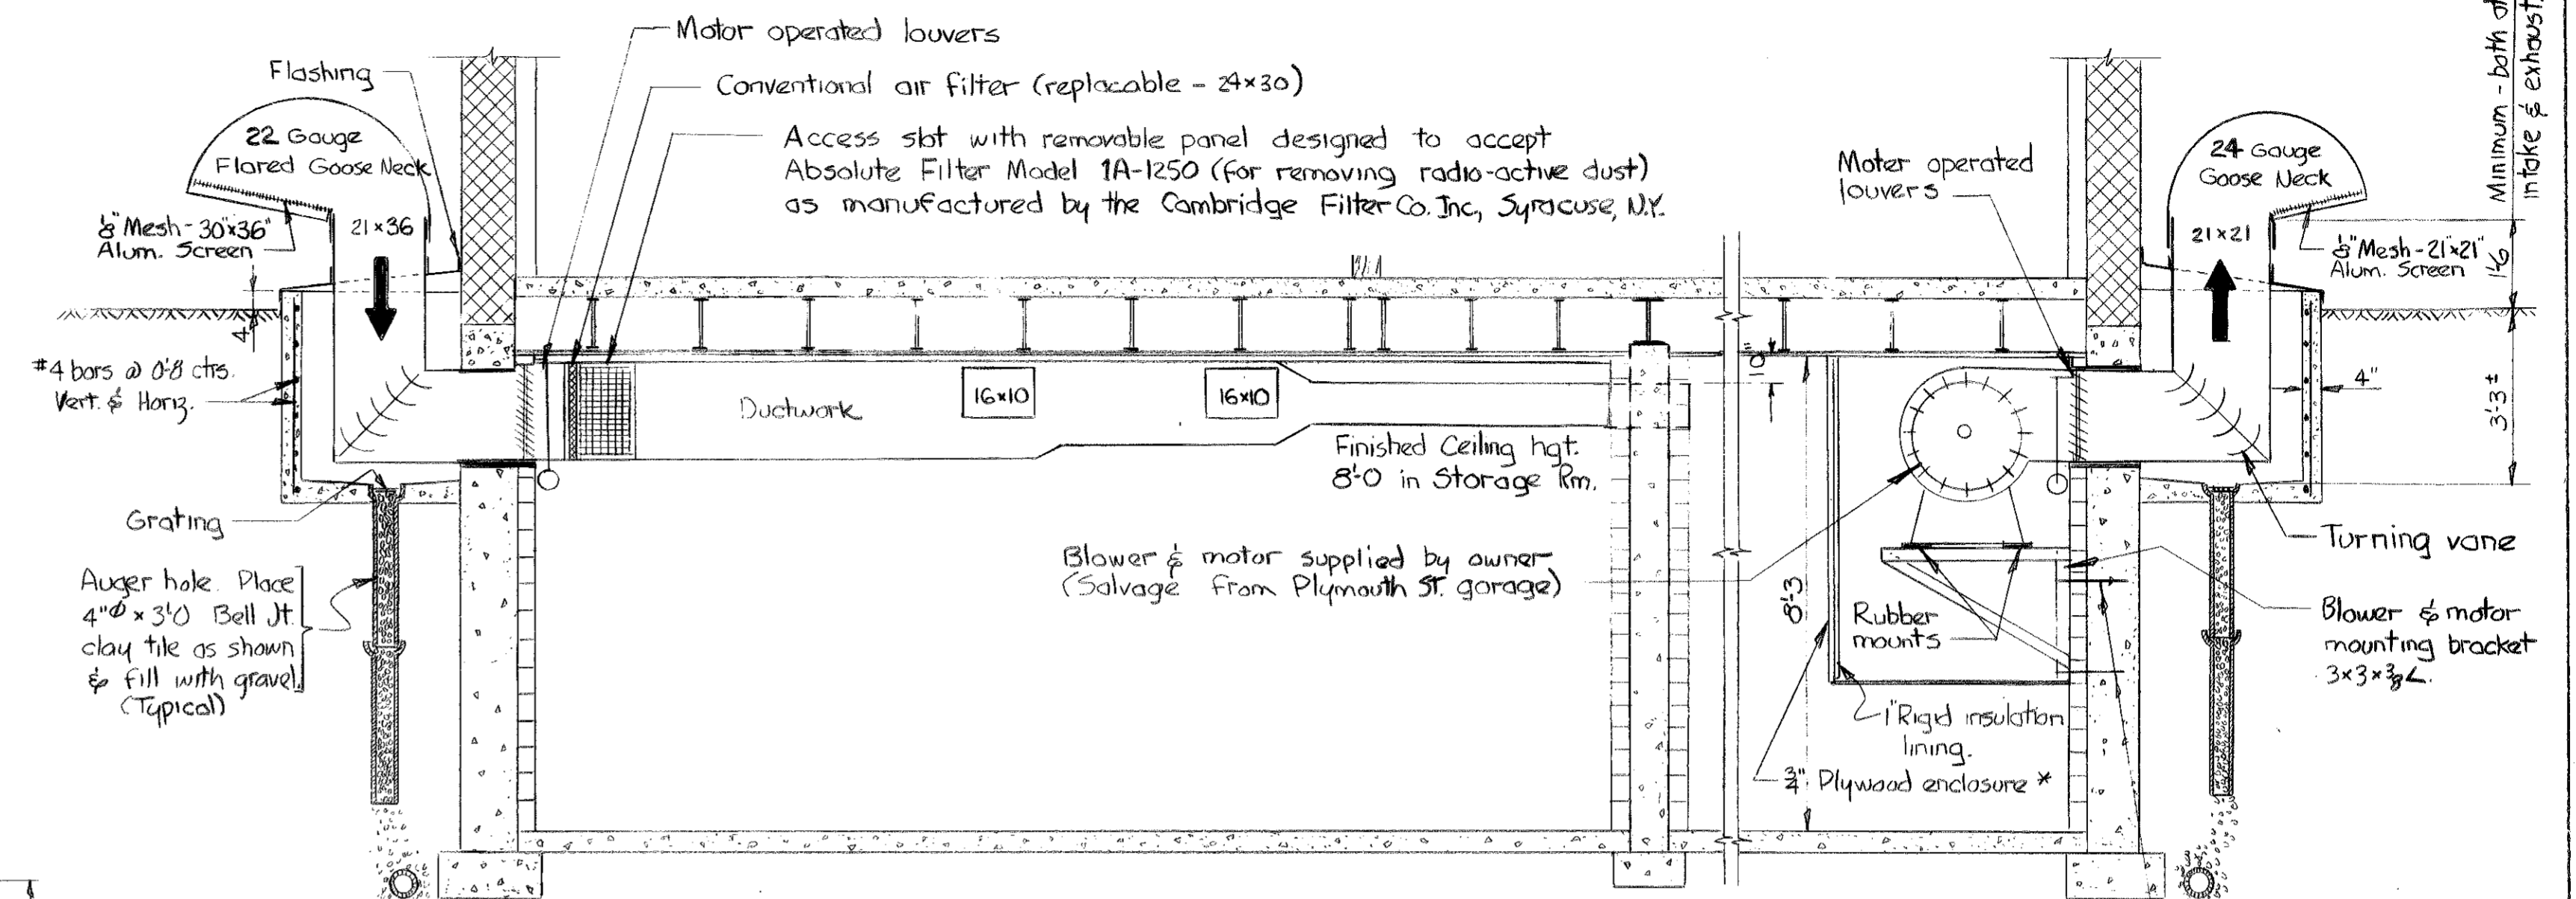 Motor operated louvers
Flashing
Conventional air filter (replacable - 24×30)
22 Gauge
Flared Goose Neck
Access slot with removable panel designed to accept
Absolute Filter Model 1A-1250 (for removing radio-active dust)
as manufactured by the Cambridge Filter Co. Inc, Syracuse, N.Y.
⅛" Mesh - 30"×36"
Alum. Screen
21×36
Moter operated
louvers
24 Gauge
Goose Neck
21×21
⅛" Mesh - 21"×21"
Alum. Screen
Minimum - both at
intake & exhaust.
1'-6
4
#4 bars @ 0'-8 ctrs.
Vert. & Horiz.
Ductwork
16×10
16×10
10"
4"
3'-3 ±
Finished Ceiling hgt.
8'-0 in Storage Rm.
Grating
Auger hole. Place
4"Ø × 3'0 Bell Jt.
clay tile as shown
& fill with gravel.
(Typical)
Blower & motor supplied by owner
(Salvage from Plymouth St. garage)
8'-3
Rubber
mounts
Turning vane
Blower & motor
mounting bracket
3×3×⅜ ∠.
1" Rigid insulation
lining.
¾" Plywood enclosure *